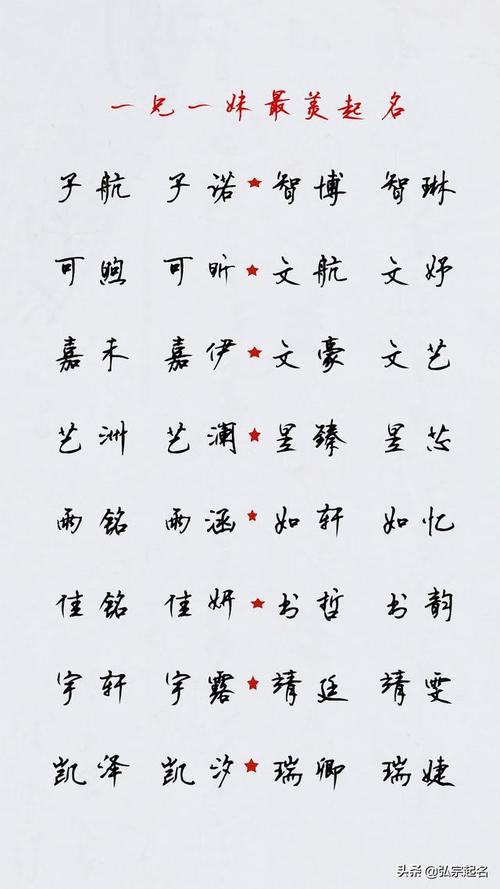 一兄一妹最美起名
子航 子诺★智博 智琳
可煦 可昕★文航 文妤
嘉禾 嘉伊★文豪 文艺
艺洲 艺澜★昱臻 昱芯
雨铭 雨涵★如轩 如忆
佳铭 佳妍★书哲 书韵
宇轩 宇露★靖廷 靖雯
凯泽 凯汐★瑞卿 瑞婕
头条 @弘宗起名